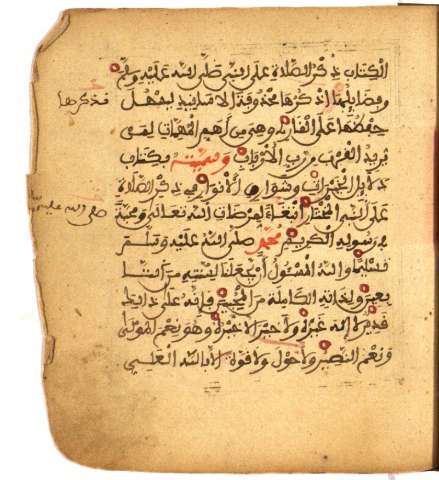 الكتاب ذكر الصلاة على النبي صلى الله عليه وسلم
وفضايلها اذكرها محذوفة الاسانيد ليسهل
نذكرها
حفظها على القارئ وهي من أهم المهمات لمن
يريد القرب من رب الارباب وسميته بكتاب
دلايل الخيرات وشوارق الانوار في ذكر الصلاة
على النبي المختار ابتغاء لمرضات الله تعالى ومحبة
صلى الله عليه
في رسوله الكريم محمد صلى الله عليه وسلم
تسليما والله المسئول أن يجعلنا لسنته من التا
بعين ولذاته الكاملة من المحبين فإنه على ذلك
قدير لا إله غيره ولا خير الا خيره وهو نعم المولى
ونعم النصير ولا حول ولا قوة الا بالله العلي